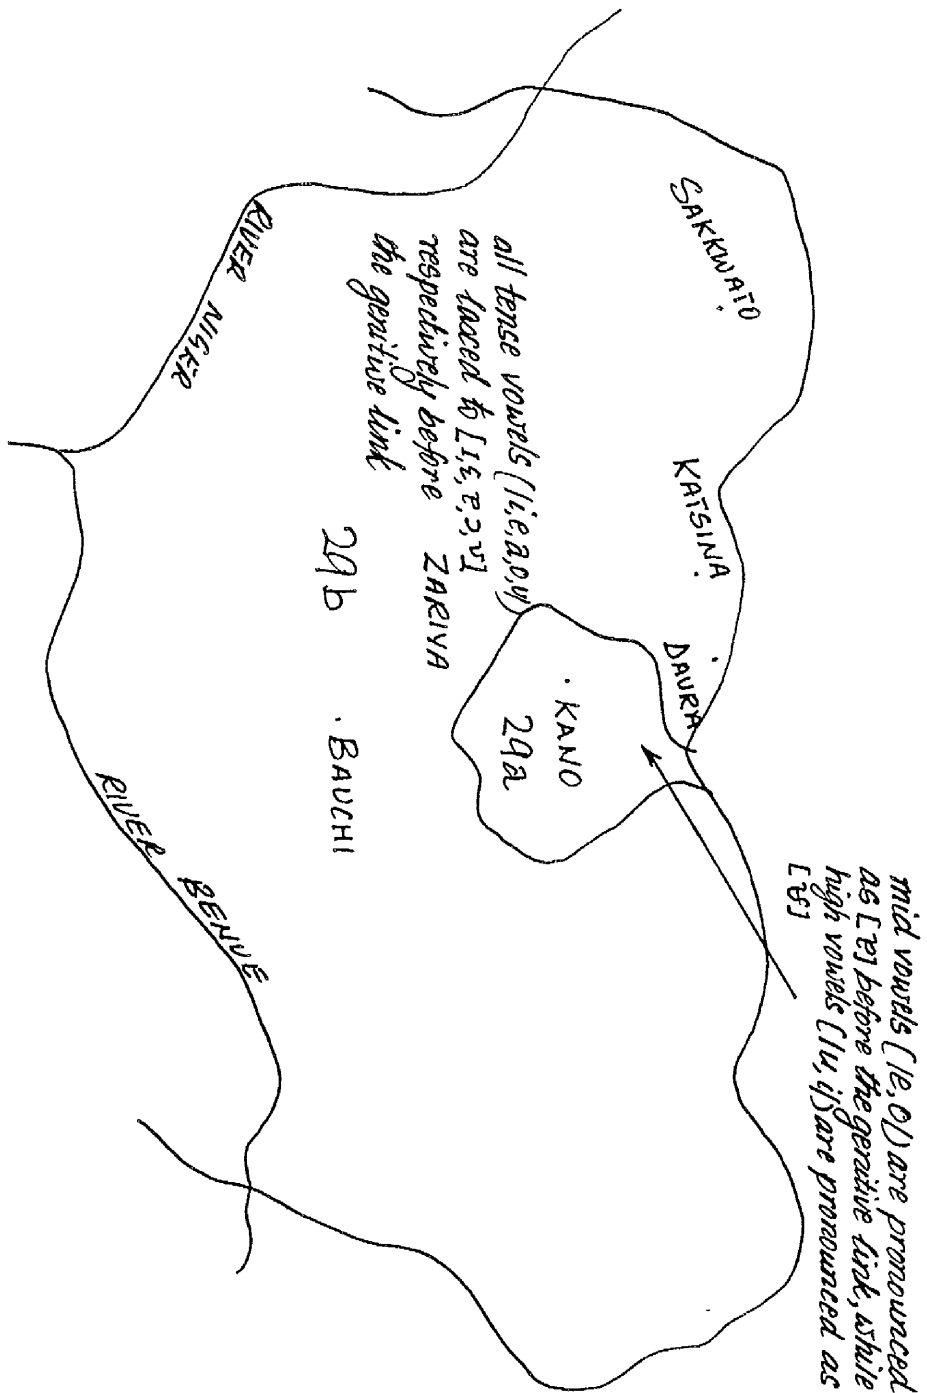 mid vowels (/e,o/) are pronounced
as [ɐ] before the genitive link, while
high vowels (/u,i/) are pronounced as
[ʊ]
SAKKWATO
KATSINA
DAURA
KANO
29a
all tense vowels (/i,e,a,o,u/)
are laxed to [ɪ,ɛ,ɐ,ɔ,ʊ]
respectively before
the genitive link
ZARIYA
29b
BAUCHI
RIVER NIGER
RIVER BENUE